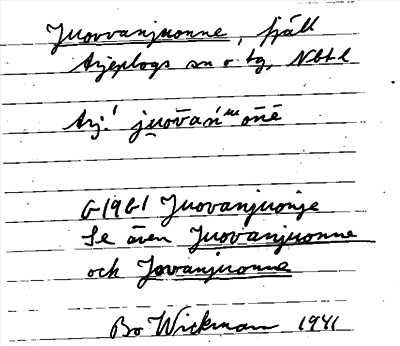 Juovvanjuonne, fjäll
Arjeplogs sn o. tg, Nbt l
Arj.! ju̯ōvańᵐōńē
G1961 Juovanjuonje
Se även Juovanjuonne
och Jovanjuonne
Bo Wickman 1941